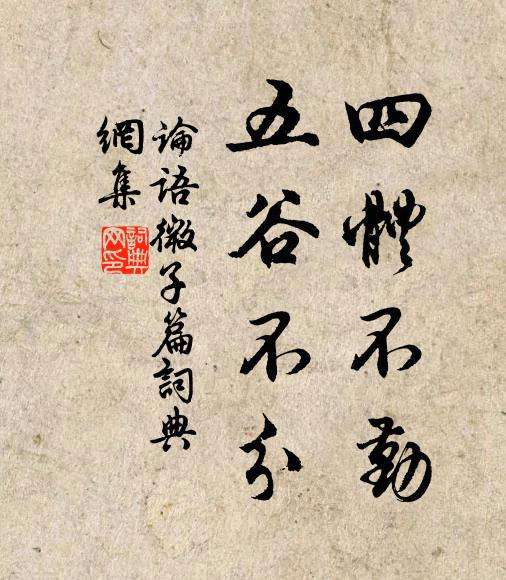 四體不勤
五谷不分
論語微子篇詞典
網集
詞典网印